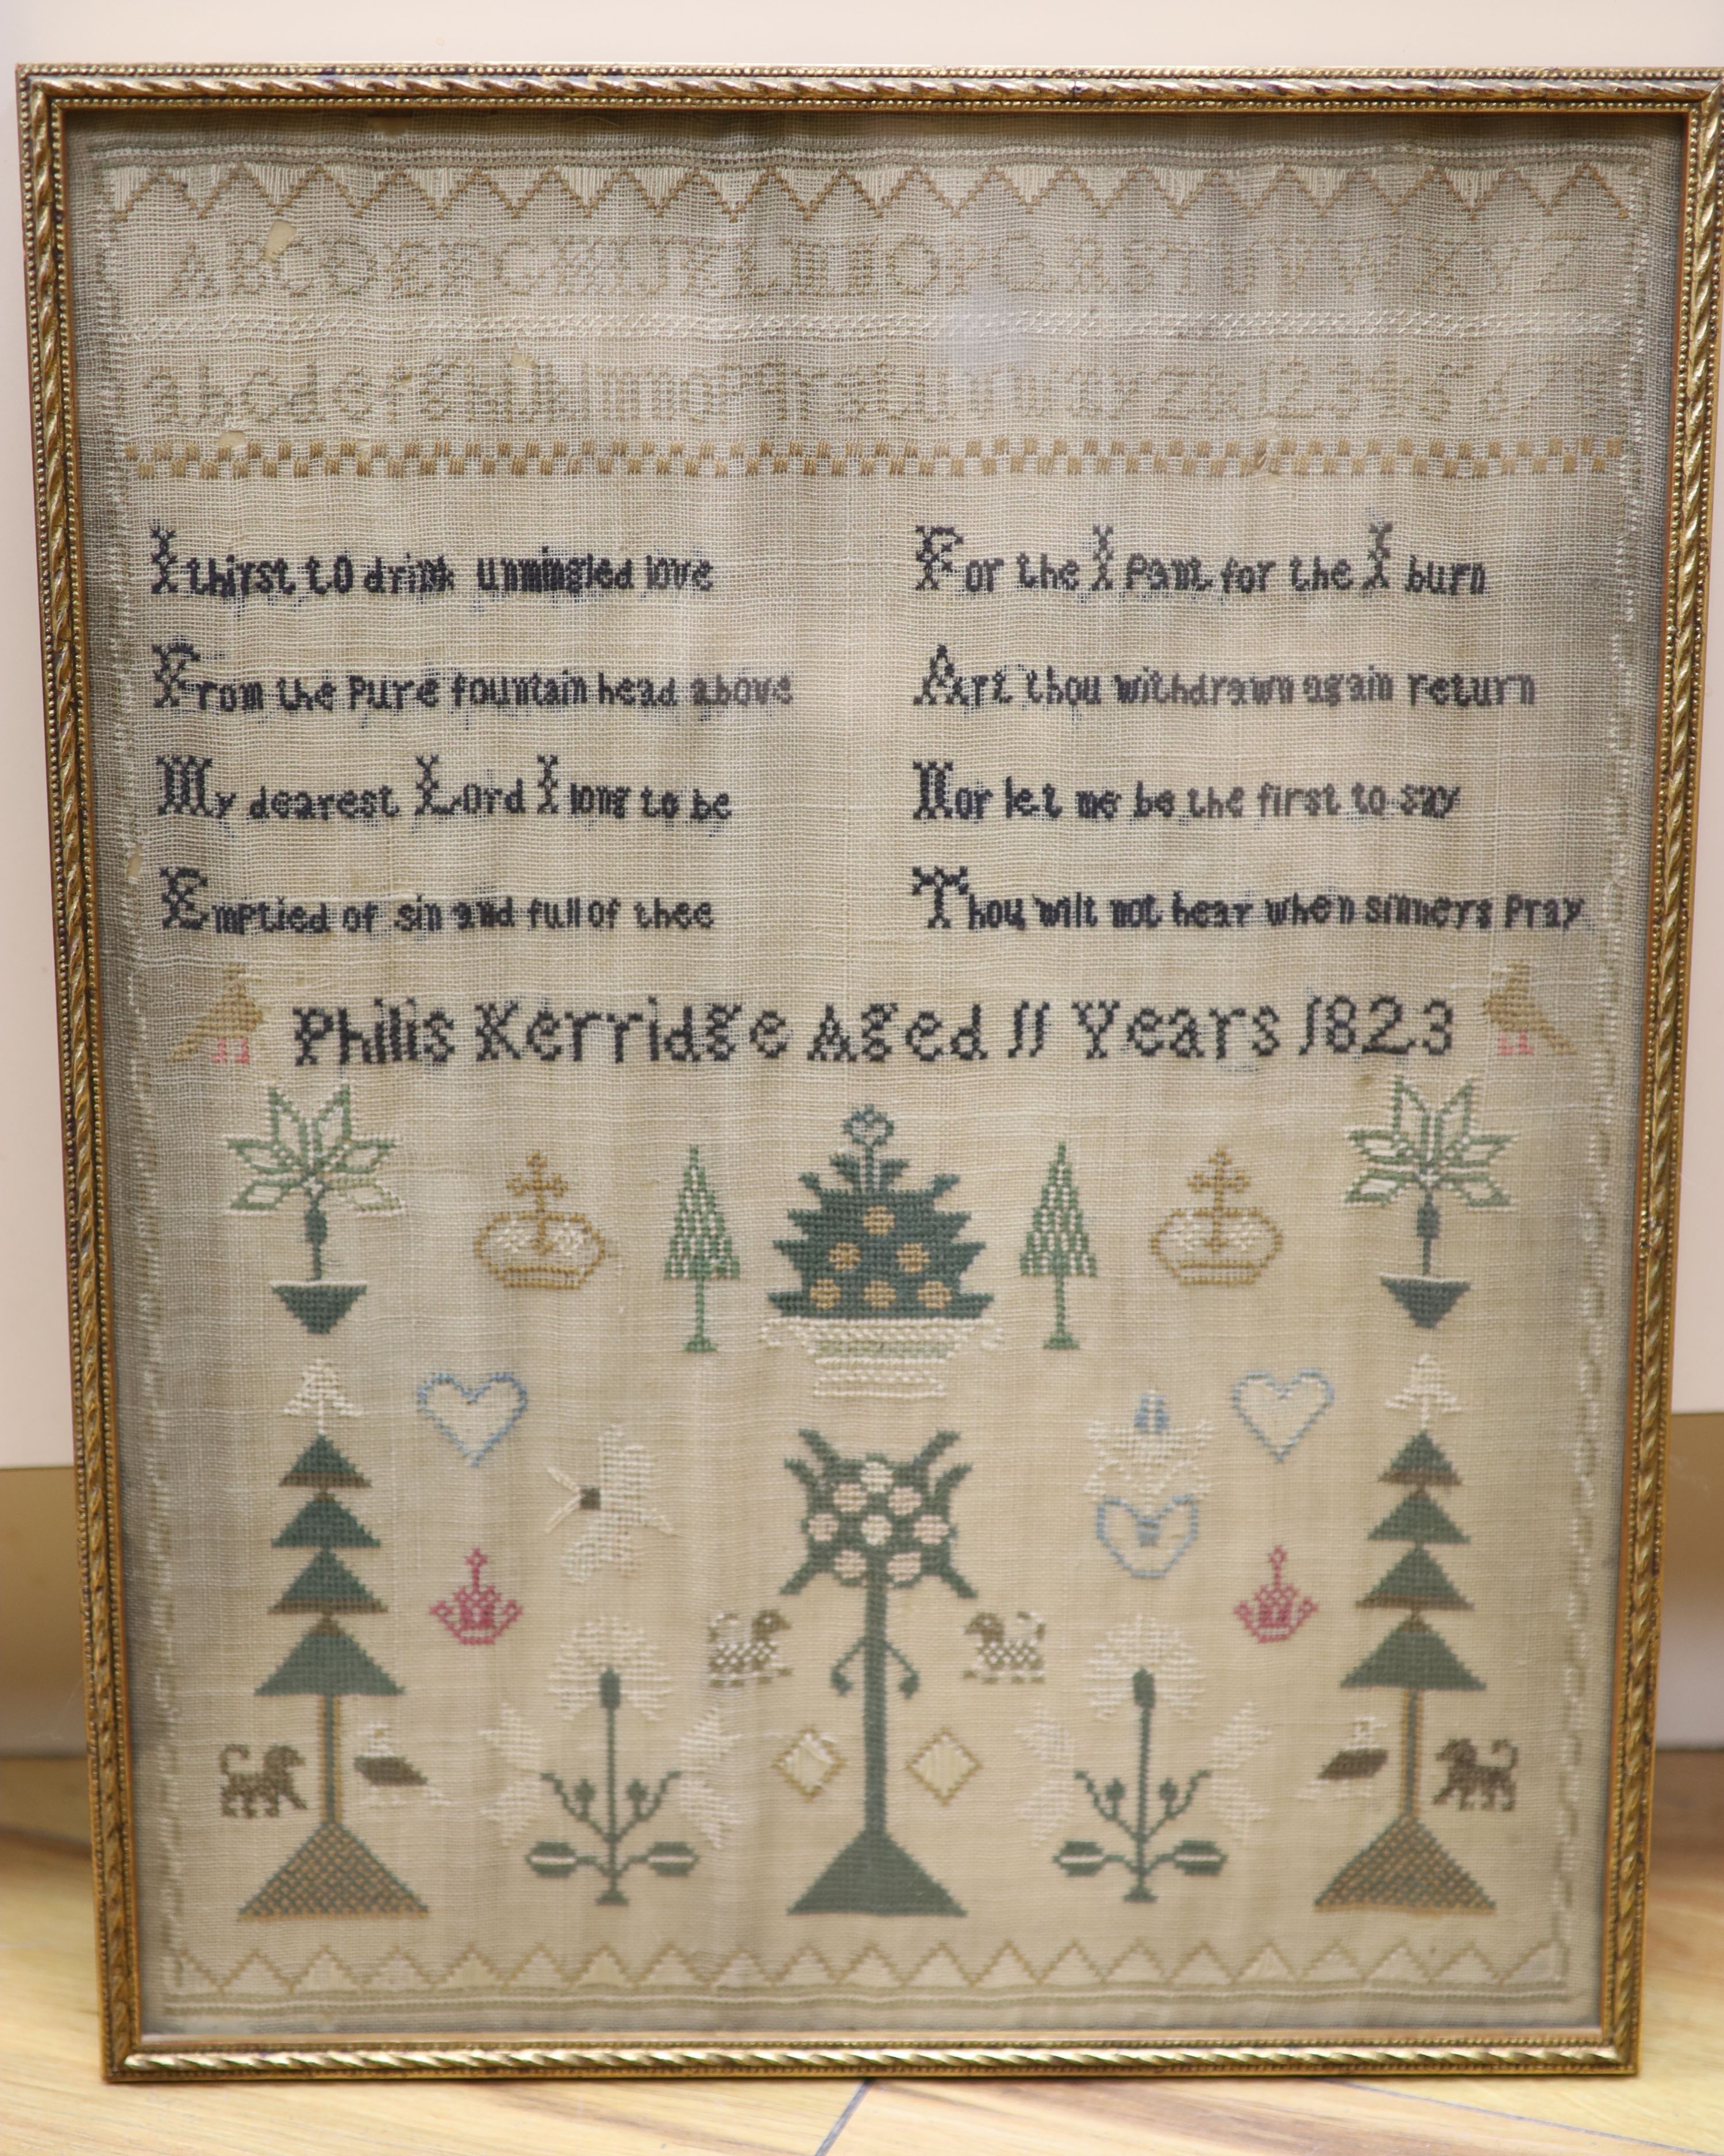 A B C D E F G H I J K L M N O P Q R S T U V W X Y Z
a b c d e f g h i k l m n o p q r s t u v w x y z & 1 2 3 4 5 6
I thirst tO drink unmingled love
From the Pure fountain head above
My dearest Lord I long to be
Emptied of sin and full of thee
For the I Pant for the I burn
Art thou withdrawn again return
Nor let me be the first to say
Thou wilt not hear when sinners Pray
Phillis Kerridge Aged 11 Years 1823